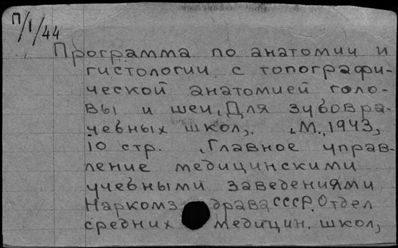 П/1/44
Программа по анатомии и
гистологии с топографи-
ческой анатомией голо-
вы и шеи, Для зубовра-
чебных школ, М., 1943,
10 стр. Главное управ-
ление медицинскими
учебными заведениями
Наркомздрава СССР. Отдел
средних медицин. школ,